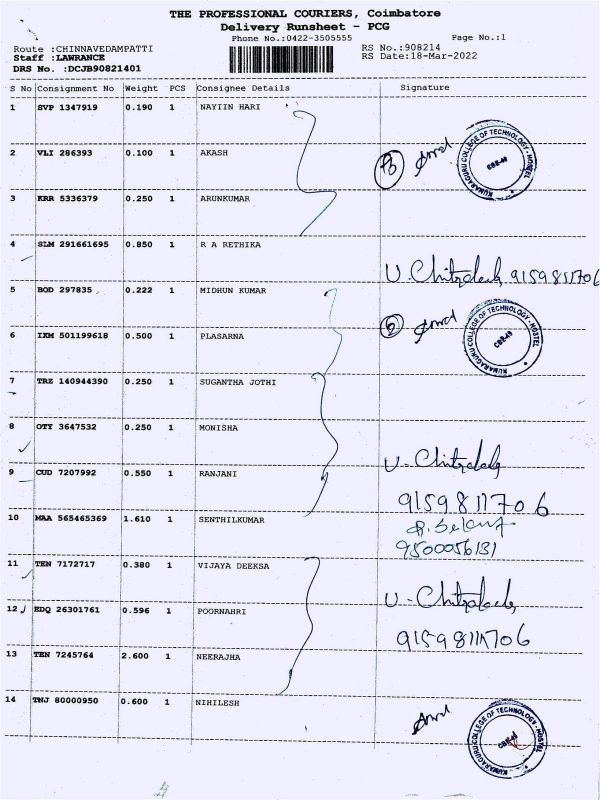 THE PROFESSIONAL COURIERS, Coimbatore
Delivery Runsheet - PCG
Phone No.:0422-3505555 Page No.:1
Route :CHINNAVEDAMPATTI RS No.:908214
Staff :LAWRANCE RS Date:18-Mar-2022
DRS No. :DCJB90821401
S No Consignment No Weight PCS Consignee Details Signature
1 SVP 1347919 0.190 1 NAYIIN HARI
2 VLI 286393 0.100 1 AKASH
KUMARAGURU COLLEGE OF TECHNOLOGY - HOSTEL
CBE-49
3 KRR 5336379 0.250 1 ARUNKUMAR
4 SLM 291661695 0.850 1 R A RETHIKA
9159811706
5 BOD 297835 0.222 1 MIDHUN KUMAR
6 IXM 501199618 0.500 1 PLASARNA
KUMARAGURU COLLEGE OF TECHNOLOGY - HOSTEL
CBE-49
7 TRZ 140944390 0.250 1 SUGANTHA JOTHI
8 OTY 3647532 0.250 1 MONISHA
9 CUD 7207992 0.550 1 RANJANI
9159811706
10 MAA 565465369 1.610 1 SENTHILKUMAR
9500056131
11 TEN 7172717 0.380 1 VIJAYA DEEKSA
12 EDQ 26301761 0.596 1 POORNAHRI
9159811706
13 TEN 7245764 2.600 1 NEERAJHA
14 TNJ 80000950 0.600 1 NIHILESH
KUMARAGURU COLLEGE OF TECHNOLOGY - HOSTEL
CBE-49